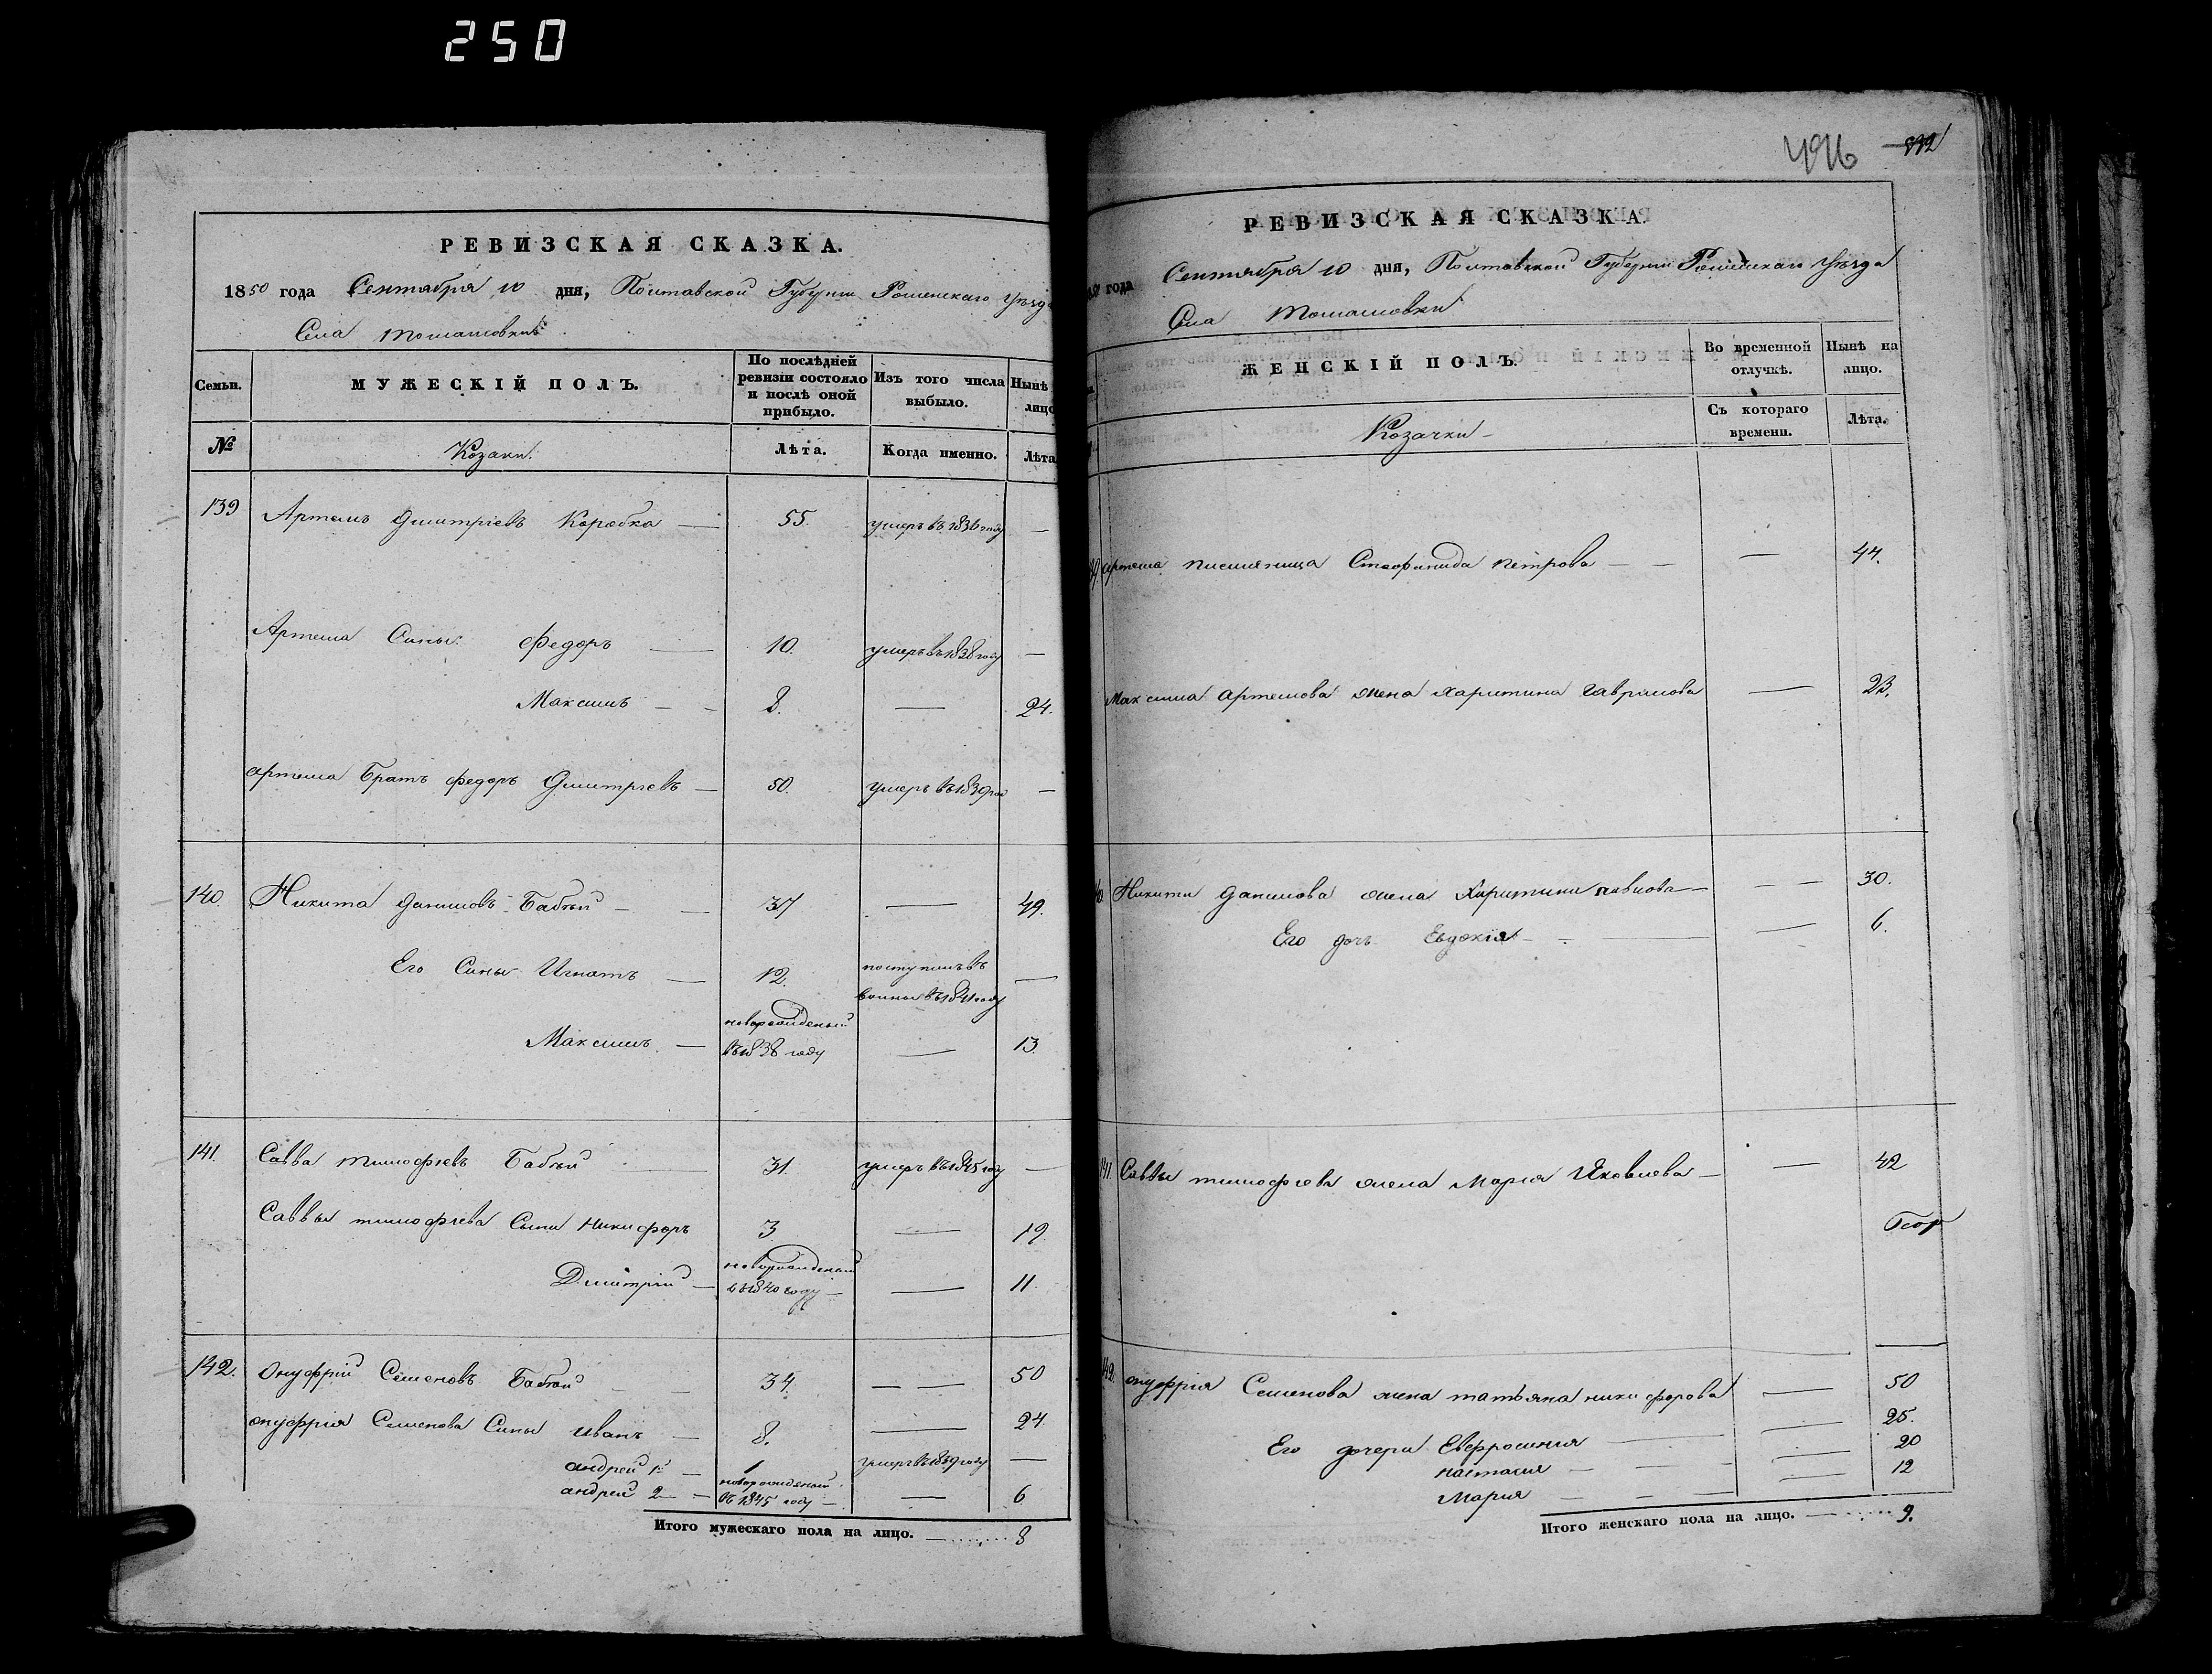 250
РЕВИЗСКАЯ СКАЗКА.
1850 года Сентября 10 дня, Полтавской Губерніи Роменскаго Уѣзда
Села Томашовки
Семьи. МУЖЕСКІЙ ПОЛЪ. По послѣдней ревизіи состояло и послѣ оной прибыло. Изъ того числа выбыло. Нынѣ лицо
№ Козаки. Лѣта. Когда именно. Лѣта
139 Артемъ Дмитріевъ Коробка — 55. умеръ въ 1836 году —
Артема Сыны: Федоръ — 10. умеръ въ 1838 году —
Максимъ — - 8. — 24.
Артема Братъ Федоръ Дмитріевъ — 50. умеръ въ 1839 году —
140. Никита Даниловъ Бабѣй - - 37 — 49.
Его Сыны Игнатъ — 12. поступилъ въ
воины въ 1841 году —
Максимъ — новорожденый
въ 1838 году — 13.
141. Савва Тимофѣевъ Бабѣй — 31. умеръ въ 1845 году —
Саввы Тимофѣева Сыны Никифоръ 3. — 19.
Дмитрій — новорожденый
въ 1840 году — — 11.
142. Онуфрій Семеновъ Бабѣй - - 34. — — 50
Онуфрія Семенова Сыны Иванъ — 8. — 24.
Андрей 1й — 1 умеръ въ 1839 году —
Андрей 2 — новорожденый
въ 1845 году — — 6
Итого мужескаго пола на лицо. — 8
496 332
РЕВИЗСКАЯ СКАЗКА.
года Сентября 10 дня, Полтавской Губерніи Роменскаго Уѣзда
Села Томашовки
ЖЕНСКІЙ ПОЛЪ. Во временной отлучкѣ. Нынѣ на лицо.
Козачки - Съ котораго времени. Лѣта.
Артема племенница Стефанида Петрова — — — 44.
Максима Артемова жена Харитина Гаврилова — 23.
Никиты Данилова жена Харитина Павлова — — — 30.
Его дочь Евдокія — — — 6.
141. Саввы Тимофѣева жена Марія Яковлева — — 42
142. Онуфрія Семенова жена Татьяна Никифорова — 50
Его дочери Евфросинія — — 25.
Настасія — — 20
Марія — — — — 12
Итого женскаго пола на лицо. — 9.